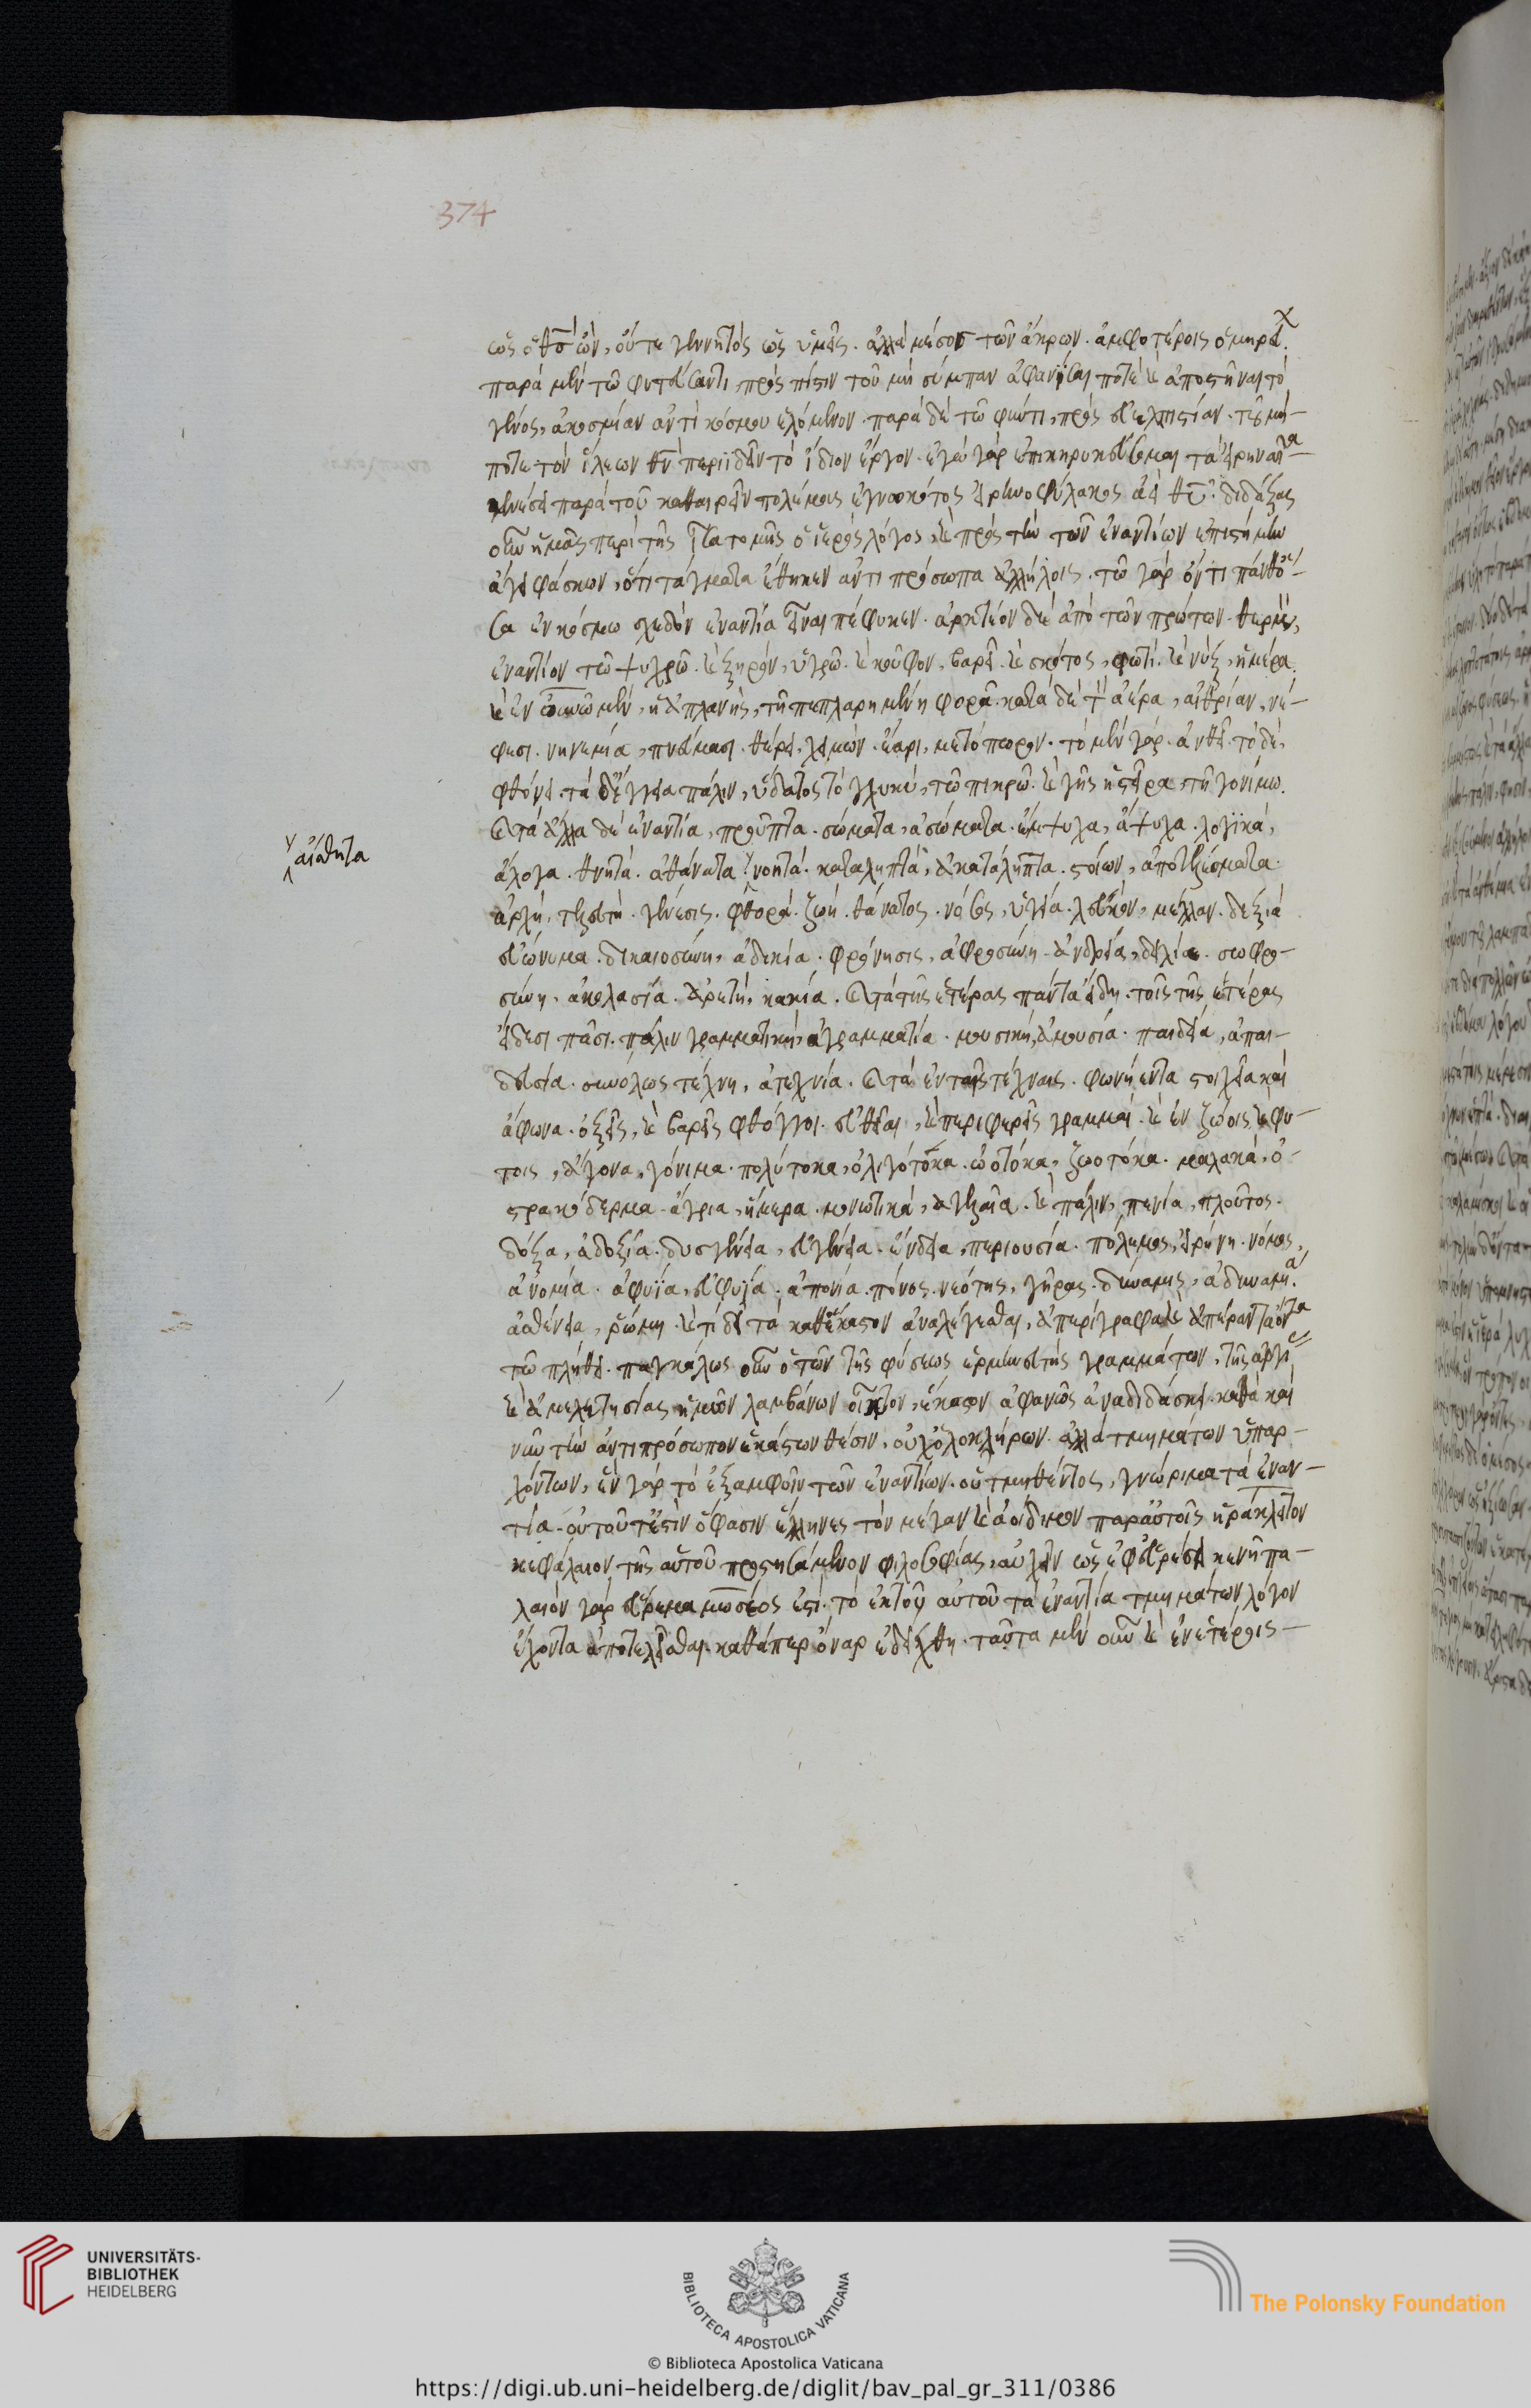 374
ὡς ὁ θς̄ ὢν, οὔτε γεννητὸς ὡς ὑμεῖς. ἀλλὰ μέσος τῶν ἄκρων. ἀμφοτέροις ὁμηρεύ.
παρὰ μὲν τῶ φυτεύσαντι, πρὸς πίστιν τοῦ μὴ σύμπαν ἀφανίσαι ποτὲ καὶ ἀποστῆναι τὸ
γένος, ἀκοσμίαν ἀντὶ κόσμου ἑλόμενον. παρὰ δὲ τῶ φύντι, πρὸς εὐελπιστίαν. τοῦ μή-
ποτε τὸν ἵλεων θν̄ περιϊδεῖν τὸ ἴδιον ἔργον. ἐγὼ γὰρ ἐπικηρυκεύσομαι τὰ εἰρηναῖα
γενέσει παρὰ τοῦ καθαιρεῖν πολέμους ἐγνωκότος εἰρηνοφύλακος ἀεὶ θῦ. διδάξας
οὖν ἡμᾶς περὶ τῆς ἴσα τομῆς ὁ ἱερὸς λόγος, καὶ πρὸς τὴν τῶν ἐναντίων ἐπιστήμην
ἄγει φάσκων, ὅτι τὰ τμήματα ἔθηκεν ἀντιπρόσωπα ἀλλήλοις. τῶ γὰρ ὄντι πάνθ' ὅ-
σα ἐν κόσμω σχεδὸν ἐναντία εἶναι πέφυκεν. ἀρκτέον δὲ ἀπὸ τῶν πρώτων. θερμὸν,
ἐναντίον τῶ ψυχρῶ. καὶ ξηρὸν, ὑγρῶ. καὶ κοῦφον, βαρεῖ. καὶ σκότος, φωτί. καὶ νὺξ, ἡμέρα.
καὶ ἐν οὐνῶ μὲν, ἡ ἀπλανὴς, τῆ πεπλανημένη φορᾶ. κατὰ δὲ τὸν ἀέρα, αἰθρίαν, νέ-
φεσι. νηνεμία, πνεύμασι. θέρει, χειμών. ἔαρι, μετόπωρον. τὸ μὲν γὰρ, ἀνθεῖ. τὸ δὲ,
φθίνει. τὰ δ' ἔγγεια πάλιν, ὕδατος τὸ γλυκὺ, τῶ πικρῶ. καὶ γῆς ἡ στεῖρα, τῆ γονίμω.
καὶ τἄλλα δὲ ἐναντία, προὖπτα. σώματα, ἀσώματα. ἔμψυχα, ἄψυχα. λογικὰ,
ἄλογα. θνητὰ. ἀθάνατα. νοητά. καταληπτὰ, ἀκατάληπτα. στοιχεῖων, ἀποτελέσματα.
αἰσθητὰ
ἀρχὴ, τελευτή. γένεσις. φθορά. ζωὴ. θάνατος. νόσος, ὑγεία. λευκὸν, μέλαν. δεξιὰ
εὐώνυμα. δικαιοσύνη, ἀδικία. φρόνησις, ἀφροσύνη. ἀνδρεία, δειλία. σωφρο-
σύνη, ἀκολασία. ἀρετὴ, κακία. καὶ τὰ τῆς ἑτέρας πάντα εἴδη. τοῖς τῆς ἑτέρας
εἴδεσι πᾶσι. πάλιν γραμματικὴ, ἀγραμματία. μουσικὴ, ἀμουσία. παιδεία, ἀπαι-
δευσία. συνόλως τέχνη, ἀτεχνία. καὶ τὰ ἐν ταῖς τέχναις. φωνήεντα στοιχεῖα καὶ
ἄφωνα. ὀξεῖς, καὶ βαρεῖς φθόγγοι. εὐθεῖαι, καὶ περιφερεῖς γραμμαί. καὶ ἐν ζώοις καὶ φυ-
τοῖς, ἄγονα, γόνιμα. πολυτόκα, ὀλιγοτόκα. ὠοτόκα, ζωοτόκα. μαλακὰ, ὀ-
στρακόδερμα. ἄγρια, ἥμερα. μονωτικὰ, ἀγελαῖα. καὶ πάλιν, πενία, πλοῦτος.
δόξα, ἀδοξία. δυσγένεια, εὐγένεια. ἔνδεια, περιουσία. πόλεμος, εἰρήνη. νόμος,
ἀνομία. ἀφυΐα, εὐφυΐα. ἀπονία. πόνος. νεότης, γῆρας. δύναμις, ἀδυναμία.
ἀσθένεια, ῥώμη. καὶ τί δεῖ τὰ καθ' ἕκαστον ἀναλέγεσθαι, ἀπερίγραφα καὶ ἀπέραντα ὄντα
τῶ πλήθει. παγκάλως οὖν ὁ τῶν τῆς φύσεως ἑρμηνεὺς τῆς γραμμάτων, τῆς ἀργί
καὶ ἀμελετησίας ἡμῶν λαμβάνων οἶκτον, ἕκαστον ἀφανῶς ἀναδιδάσκει. καθὰ καὶ
νῦν τὴν ἀντιπρόσωπον ἑκάστων θέσιν, οὐχ ὁλοκλήρων. ἀλλὰ τμημάτων ὑπαρ-
χόντων, ἓν γὰρ τὸ ἐξ ἀμφοῖν τῶν ἐναντίων. οὗ τμηθέντος, γνώριμα τὰ ἐναν-
τία. οὐ τοῦτ' ἐστὶν ὅ φασιν ἕλληνες τὸν μέγαν καὶ ἀοίδιμον παρ' αὐτοῖς ἡράκλειτον
κεφάλαιον τῆς αὐτοῦ προστησάμενον φιλοσοφίας, αὐχεῖν ὡς ἐφ' εὑρέσει καινῆ πα-
λαιὸν γὰρ εὕρεμα μωσέος ἐστί. τὸ ἐκ τοῦ αὐτοῦ τὰ ἐναντία τμημάτων λόγον
ἔχοντα ἀποτελεῖσθαι. καθάπερ ὄναρ ἐδείχθη. ταῦτα μὲν οὖν καὶ ἐν ἑτέροις-
UNIVERSITÄTS-
BIBLIOTHEK
HEIDELBERG
BIBLIOTECA APOSTOLICA VATICANA
The Polonsky Foundation
© Biblioteca Apostolica Vaticana
https://digi.ub.uni-heidelberg.de/diglit/bav_pal_gr_311/0386